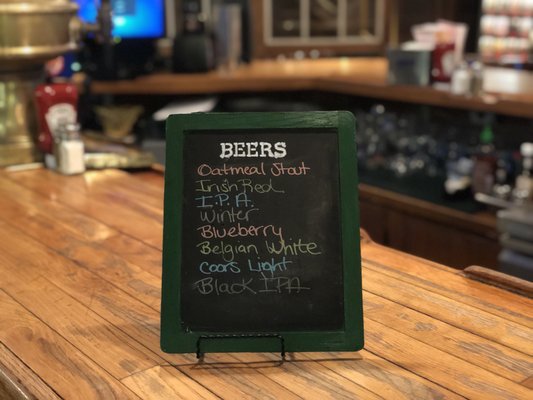 BEERS
Oatmeal Stout
Irish Red
I.P.A.
Winter
Blueberry
Belgian White
Coors Light
Black IPA